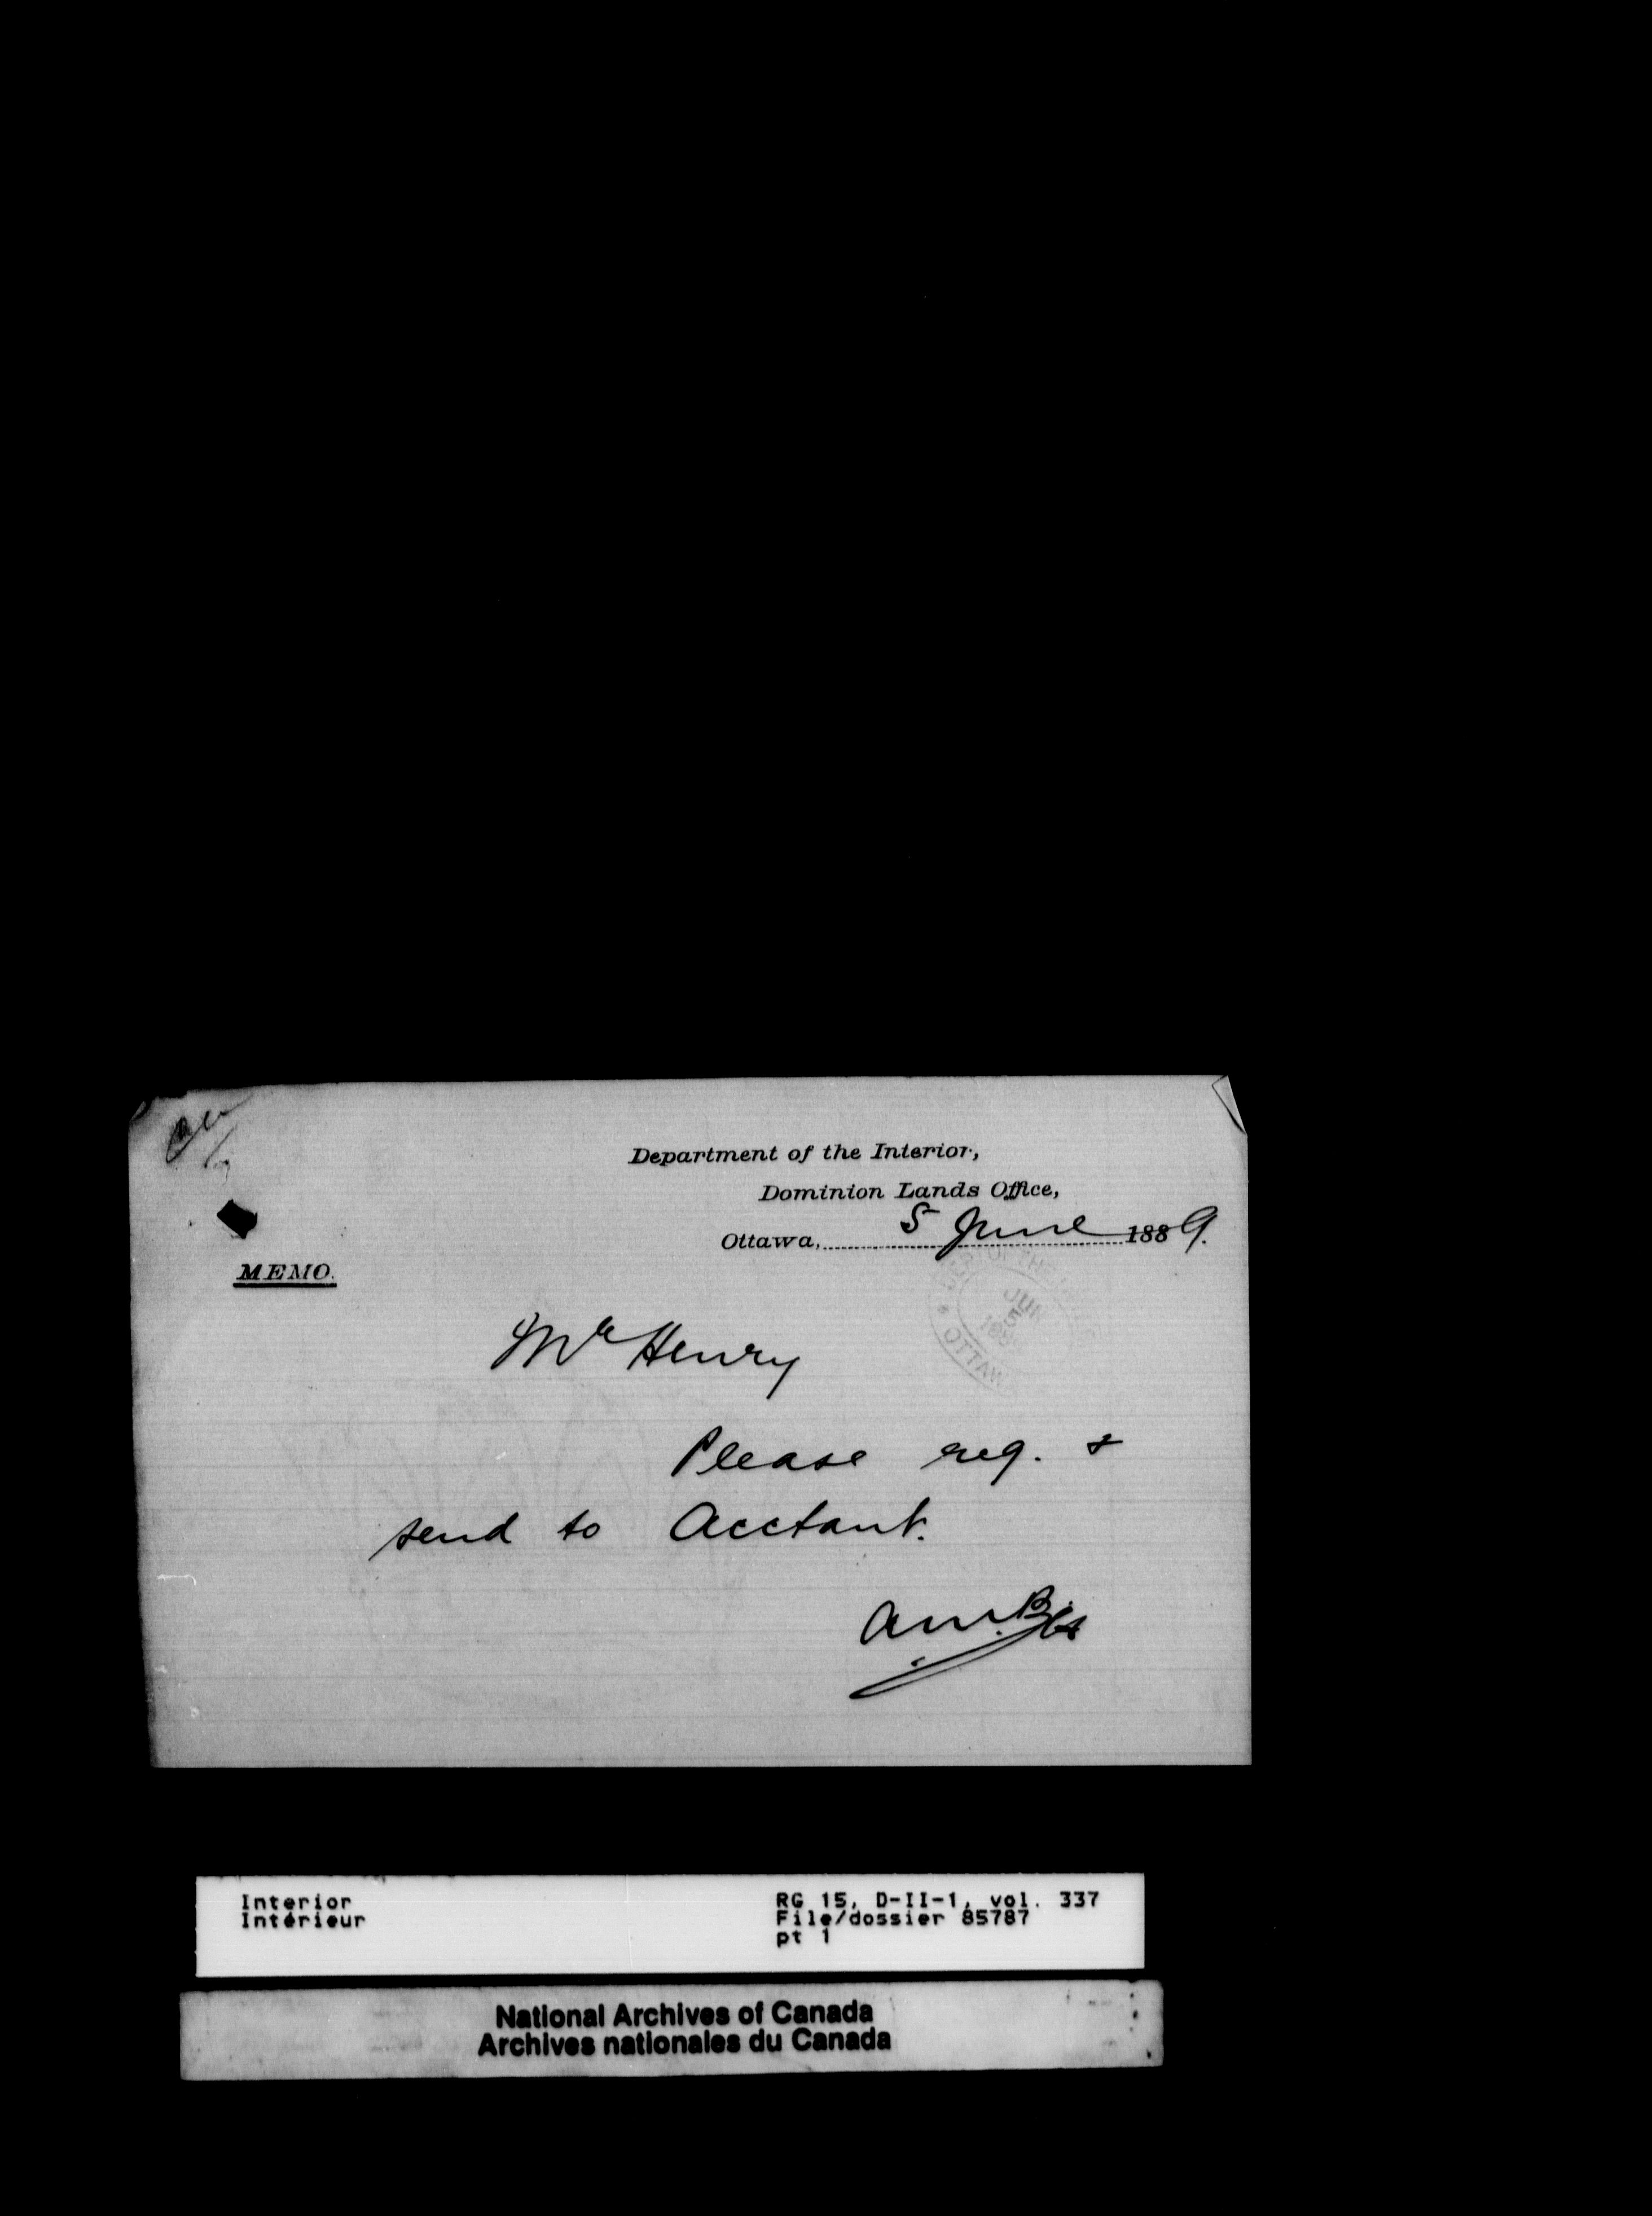 Department of the Interior,
Dominion Lands Office,
Ottawa, 5 June 1889.
MEMO.
DEPT OF THE
JUN
5
OTTAWA
Mr Henry
Please reg. &
send to Acctant.
Interior
Intérieur
RG 15, D-II-1, vol. 337
File/dossier 85787
pt 1
National Archives of Canada
Archives nationales du Canada